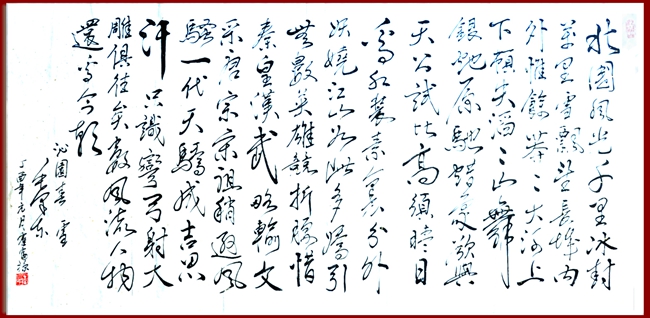 北國風光千里冰封
萬里雪飄望長城内
外惟餘莽〻大河上
下頓失滔〻山舞
銀蛇原馳蠟象欲與
天公試比高須晴日
看红裝素裹分外
妖嬈江山如此多嬌引
無數英雄競折腰惜
秦皇漢武略輸文
采唐宗宋祖稍遜風
騷一代天驕成吉思
汗只識彎弓射大
雕俱往矣數風流人物
還看今朝
沁園春雪
毛澤東
丁酉年元月